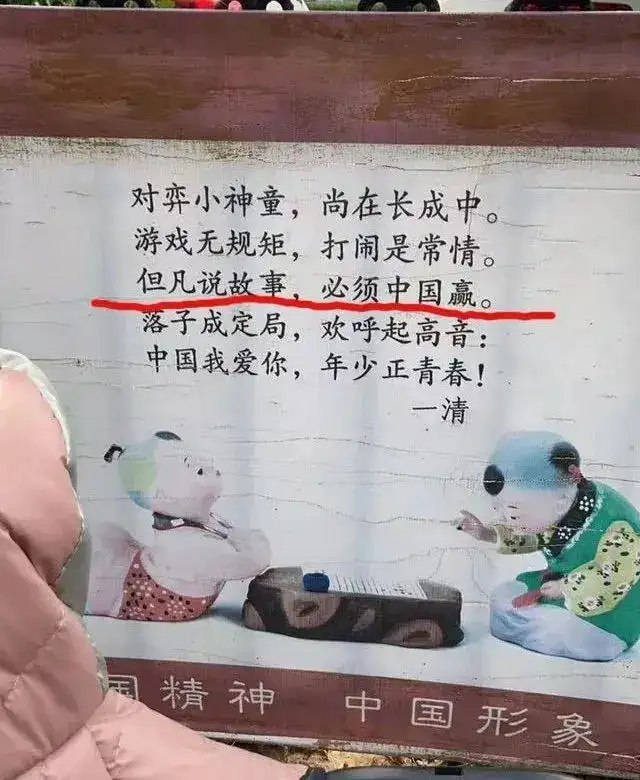 对弈小神童，尚在长成中。
游戏无规矩，打闹是常情。
但凡说故事，必须中国赢。
落子成定局，欢呼起高音：
中国我爱你，年少正青春！
一清
国精神 中国形象